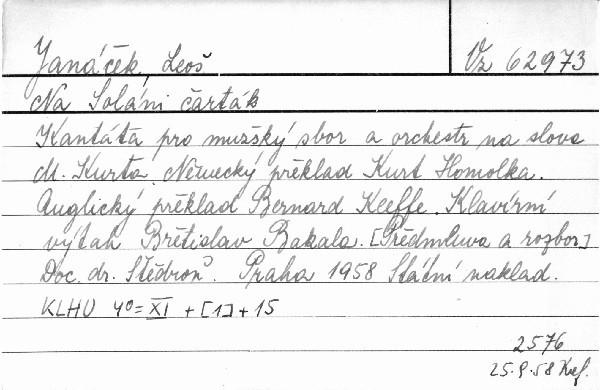 Janáček, Leoš
Vz 62973
Na Soláni čarták
Kantáta pro mužský sbor a orchestr na slova
M. Kurta. Německý překlad Kurt Homolka.
Anglický překlad Bernard Keeffe. Klavírní
výtah Břetislav Bakala. [Předmluva a rozbor]
Doc. dr. Štědroň. Praha 1958 Státní naklad.
KLHU 4° = XI + [1] + 15
2576
25.9.58